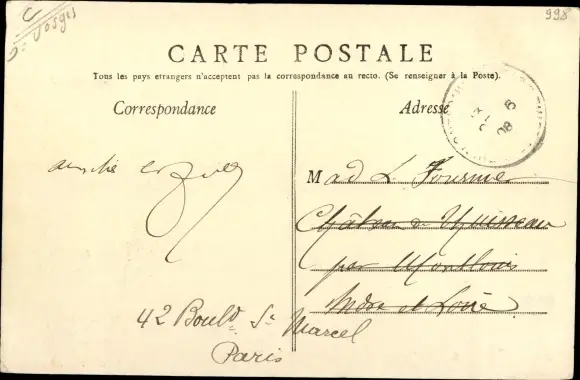 998
Vosges
CARTE POSTALE
Tous les pays etrangers n'acceptent pas la correspondance au recto. (Se renseigner à la Poste).
Correspondance
Adresse
Mad L. Fournier
Château de
par Montlouis
Indre et Loire
42 Bould St Marcel
Paris